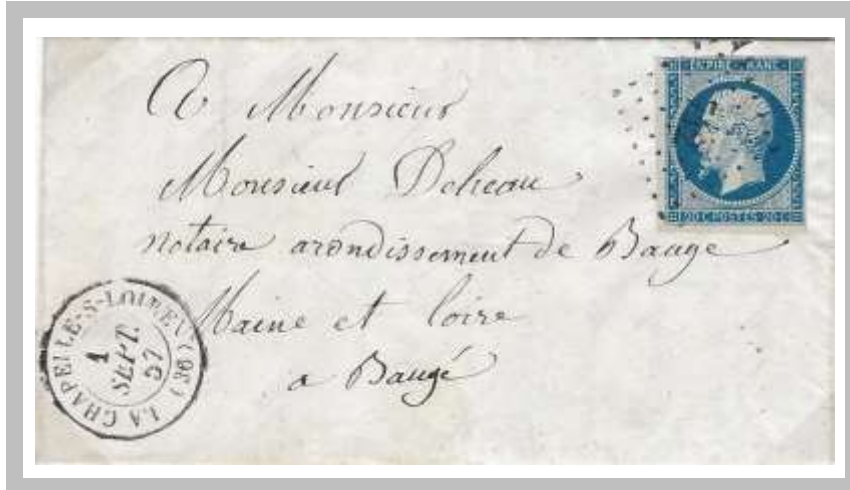 EMPIRE FRANC
20 C POSTES 20 C
A Monsieur
Monsieur
notaire arondissement de Bauge
Maine et loire
a Baugé
LA CHAPELLE-S-LOIRE (36)
1
SEPT.
57